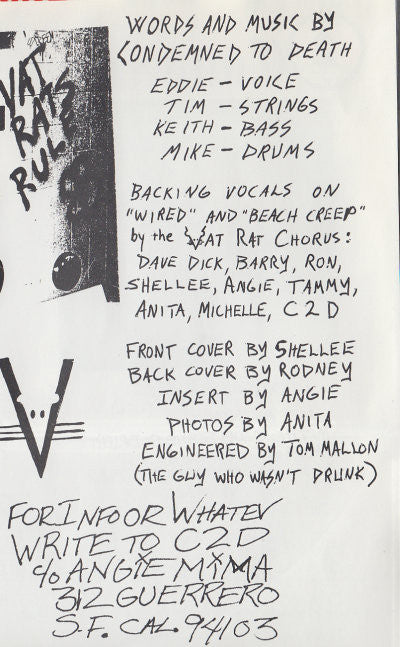 VAT
RATS
RULE
WORDS AND MUSIC BY
CONDEMNED TO DEATH
EDDIE – VOICE
TIM – STRINGS
KEITH – BASS
MIKE – DRUMS
BACKING VOCALS ON
"WIRED" AND "BEACH CREEP"
by the VAT RAT CHORUS:
DAVE DICK, BARRY, RON,
SHELLEE, ANGIE, TAMMY,
ANITA, MICHELLE, C2D
FRONT COVER BY SHELLEE
BACK COVER BY RODNEY
INSERT by ANGIE
PHOTOS BY ANITA
ENGINEERED BY TOM MALLON
(THE GUY WHO WASN'T DRUNK)
FOR INFO OR WHATEV
WRITE TO C2D
c/o ANGIE MIMA
312 GUERRERO
S.F. CAL. 94103